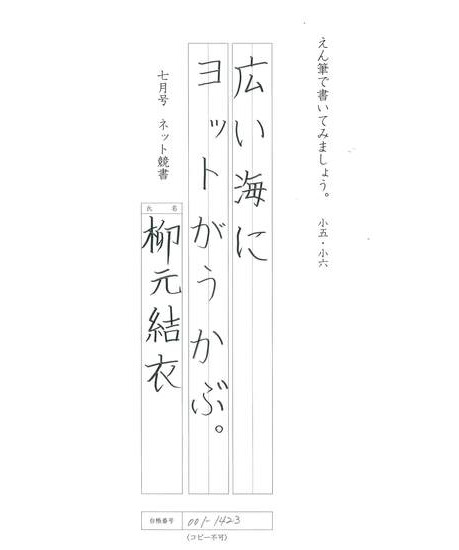 えん筆で書いてみましょう。 小五・小六
広い海に
ヨットがうかぶ。
七月号 ネット競書
氏名
柳元結衣
台帳番号 001-1423
(コピー不可)